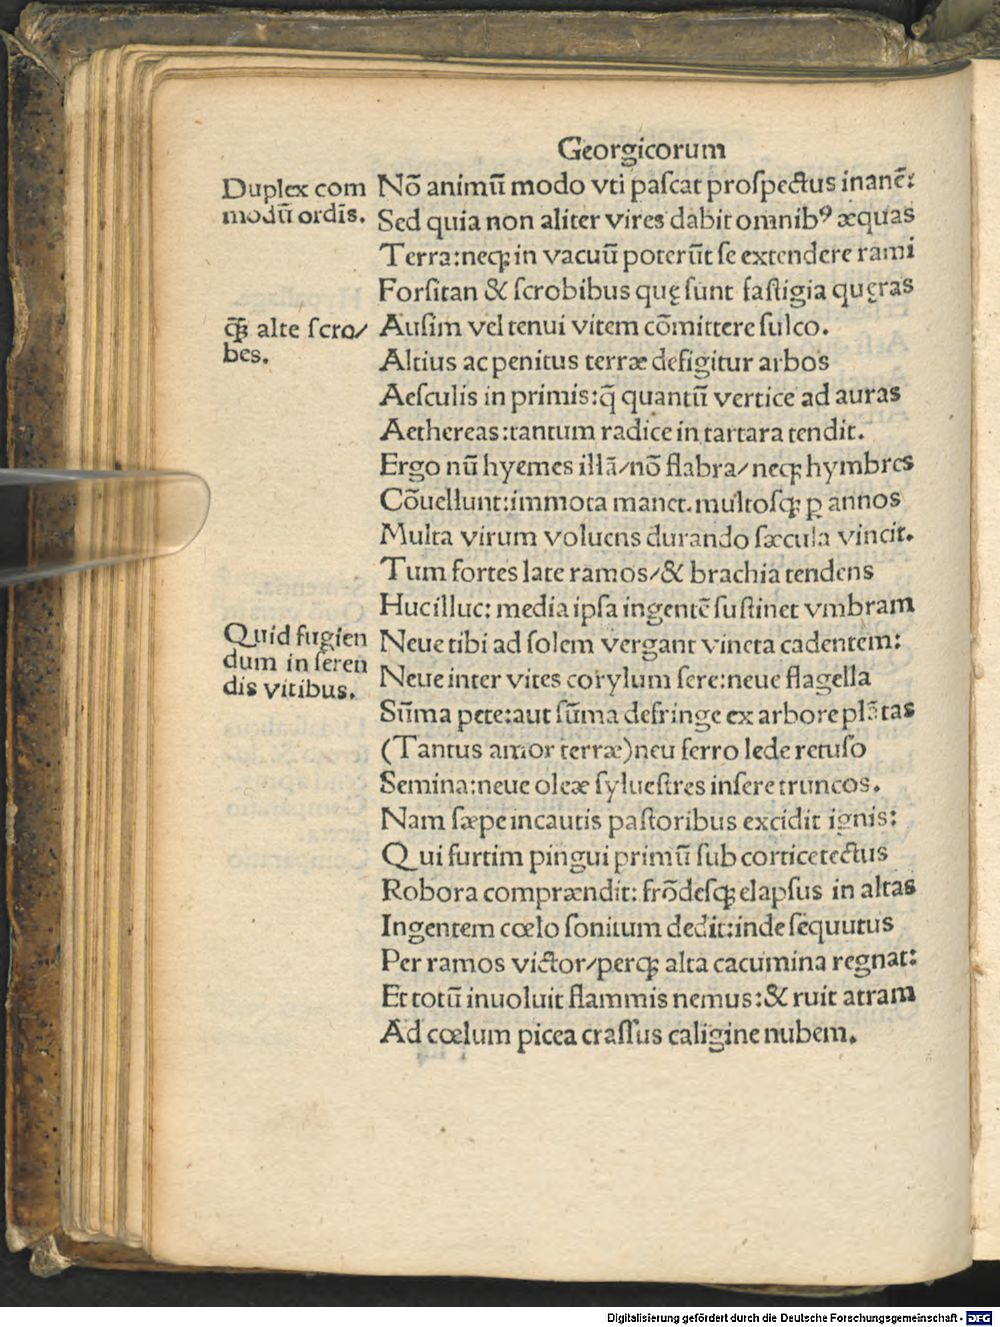 Georgicorum
Duplex com
modū ordīs.
Nō animū modo vti paſcat proſpectus inanē:
Sed quia non aliter vires dabit omnibꝰ æquas
Terra: neqꝫ in vacuū poterūt ſe extendere rami
Forſitan & ſcrobibus quę ſunt faſtigia quęras
q̄ꝫ alte ſcro/
bes.
Auſim vel tenui vitem cōmittere ſulco.
Altius ac penitus terræ defigitur arbos
Aeſculis in primis: q̄ quantū vertice ad auras
Aethereas: tantum radice in tartara tendit.
Ergo nū hyemes illā/ nō flabra/ neqꝫ hymbres
Cōuellunt: immota manet. multoſqꝫ ꝑ annos
Multa virum voluens durando ſæcula vincit.
Tum fortes late ramos/ & brachia tendens
Hucilluc: media ipſa ingentē ſuſtinet vmbram
Quid fugien
dum in ſeren
dis vitibus.
Neue tibi ad ſolem vergant vineta cadentem:
Neue inter vites corylum ſere: neue flagella
Sūma pete: aut ſūma defringe ex arbore plātas
(Tantus amor terræ) neu ferro lede retuſo
Semina: neue oleæ ſylueſtres inſere truncos.
Nam ſæpe incautis paſtoribus excidit ignis:
Qui furtim pingui primū ſub cortice tectus
Robora comprændit: frōdeſqꝫ elapſus in altas
Ingentem cœlo ſonitum dedit: inde ſequutus
Per ramos victor/ perqꝫ alta cacumina regnat:
Et totū inuoluit flammis nemus: & ruit atram
Ad cœlum picea craſſus caligine nubem.
Digitalisierung gefördert durch die Deutsche Forschungsgemeinschaft - DFG